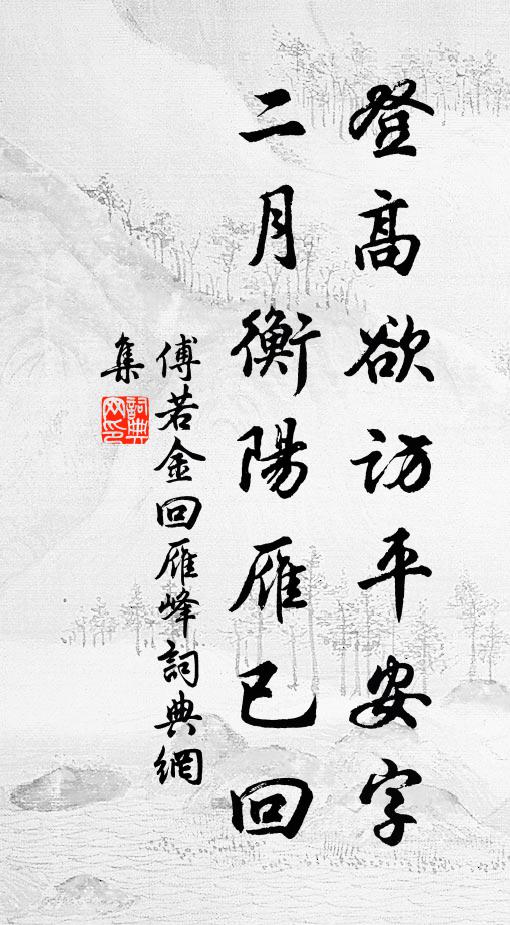 登高欲訪平安字
二月衡陽雁已回
傅若金回雁峰詞典網
集
詞典網印